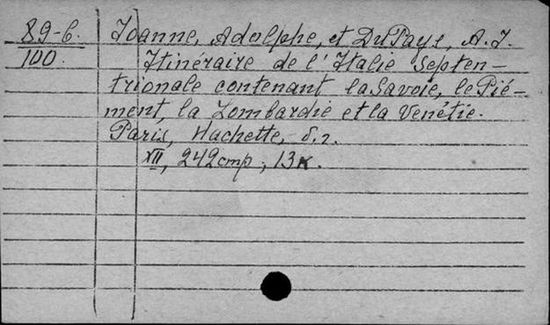 89-6. Joanne, Adolphe, et Du Pays, A. J.
100. Itinéraire de l'Italie Septen-
trionale contenant la Savoie, le Pié-
ment, la Lombardie et la Venétie.
Paris, Hachette, s.d.
XII, 242 cmp; 13 к.